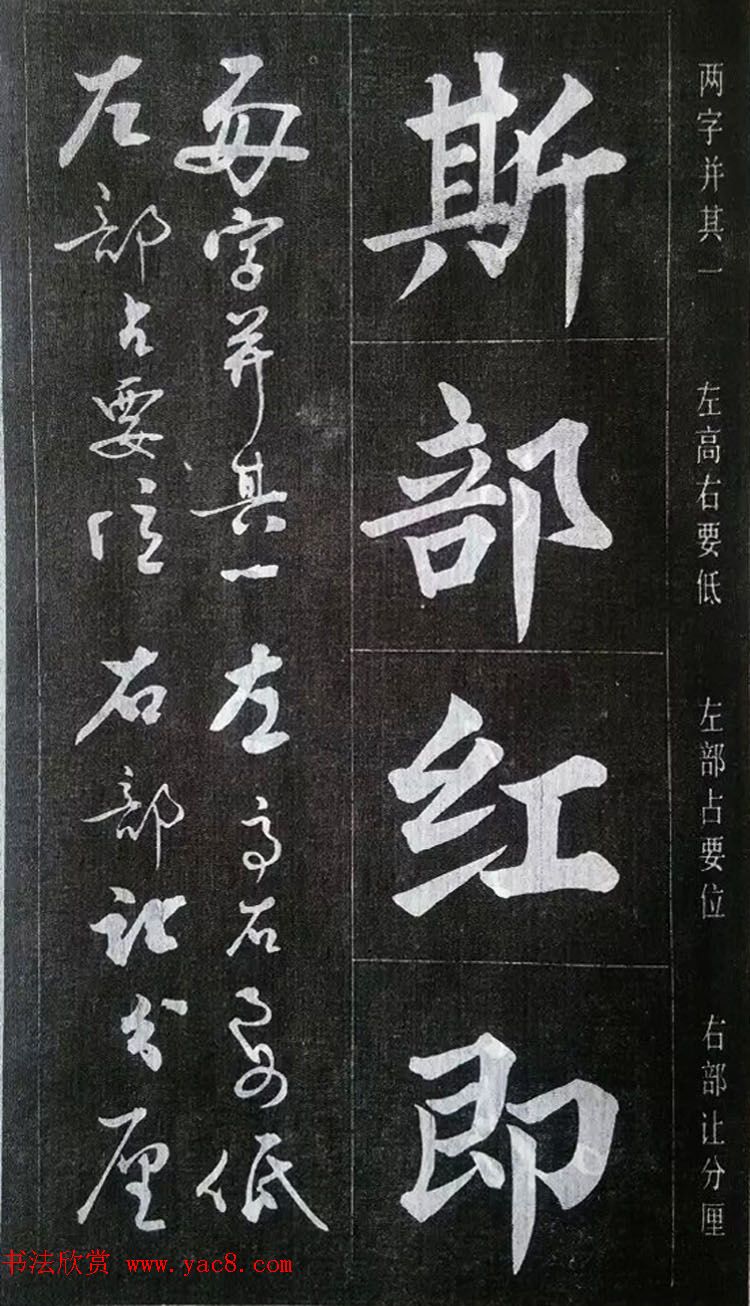 两字并其一 左高右要低 左部占要位 右部让分厘
斯部红即
每字并其一 左高右要低
左部占要位 右部让分厘
书法欣赏 www.yac8.com